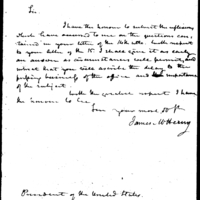 Sir
I have the honour to submit the reflexions
which have occurred to me on the questions con-
tained in your letter of the 10th ulto. With respect
to your letter of the I shall give it as early
an answer as circumstances will permit, and
intreat that you will ascribe the delay to the
pressing business of the office and importance
of the subject.
With the sincerest respect I have
the honour to be,
Sir your most Obt
James McHenry
President of the United States.